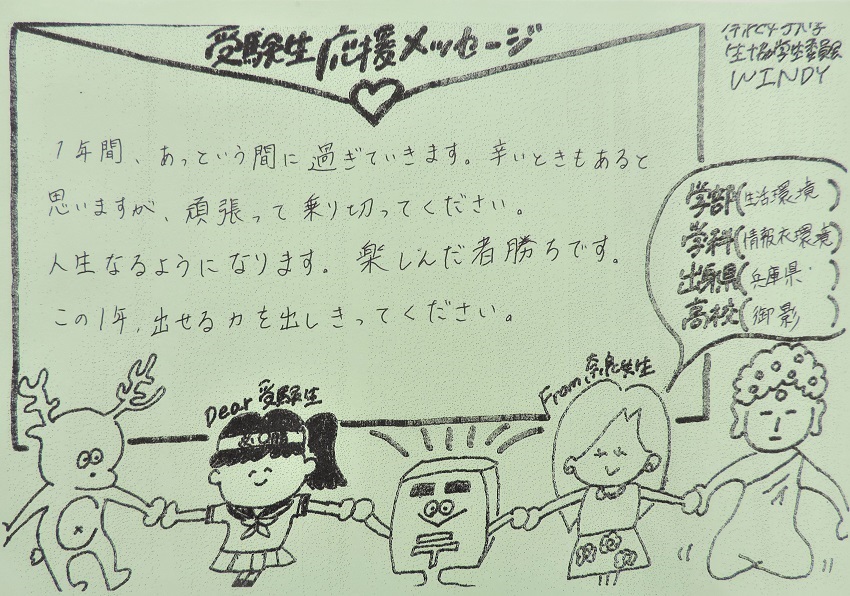 受験生応援メッセージ
生協学生委員会
WINDY
1年間、あっという間に過ぎていきます。辛いときもあると
思いますが、頑張って乗り切ってください。
人生なるようになります。楽しんだ者勝ちです。
この1年、出せる力を出しきってください。
学部(生活環境)
学科(情報衣環境)
出身県(兵庫県)
高校(御影)
Dear 受験生
From 奈良女生
〒